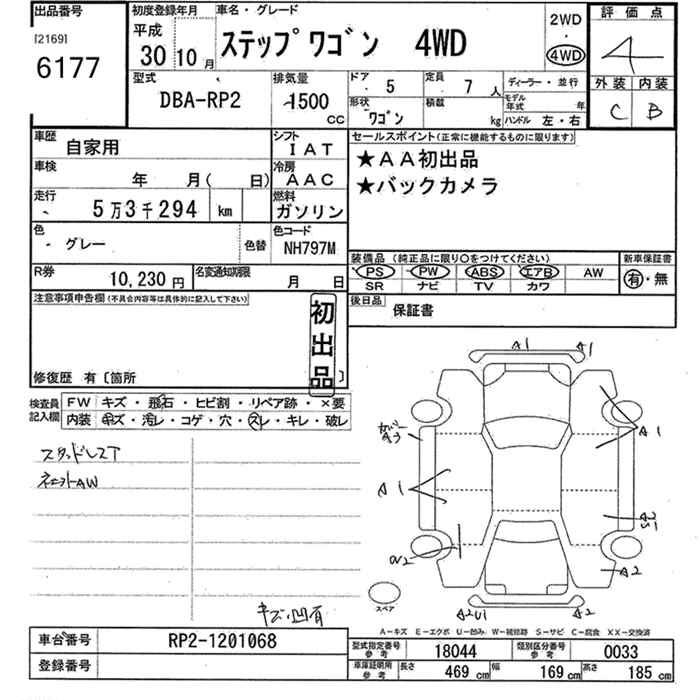 出品番号
[2169]
6177
初度登録年月
平成
30 10 月
車名・グレード
ステップワゴン 4WD
2WD
・
4WD
評価点
4
外装 内装
C B
型式
DBA-RP2
排気量
1500
cc
ドア 5
定員 7 人
ディーラー・並行
形状 ワゴン
積載 kg
モデル年式 年
ハンドル 左・右
車歴 自家用
シフト IAT
車検 年 月( 日)
冷房 AAC
走行 5万3千294 km
燃料 ガソリン
色 グレー 色替
色コード NH797M
R券 10,230 円
名変通知期限 月 日
セールスポイント(正常に機能するものに限ります)
★AA初出品
★バックカメラ
装備品 (純正品に限り○をつけてください)
PS PW ABS エアB AW
SR ナビ TV カワ
新車保証書
有・無
後日品 保証書
注意事項申告欄(不具合内容等は具体的に記入して下さい)
初出品
修復歴 有〔箇所 〕
検査員記入欄
FW キズ・飛石・ヒビ割・リペア跡・×要
内装 キズ・汚レ・コゲ・穴・スレ・キレ・破レ
スタッドレスT
ネコートAW
キズ・凹有
A1 A1
カバーA3
A1
A1
A2
S1
W2
A2
A2U1
A2
スペア
A-キズ E-エクボ U-凹み W-補修跡 S-サビ C-腐食 XX-交換済
車台番号 RP2-1201068
登録番号
型式指定番号 参考 18044
類別区分番号 参考 0033
車庫証明用 参考
長さ 469 cm
幅 169 cm
高さ 185 cm